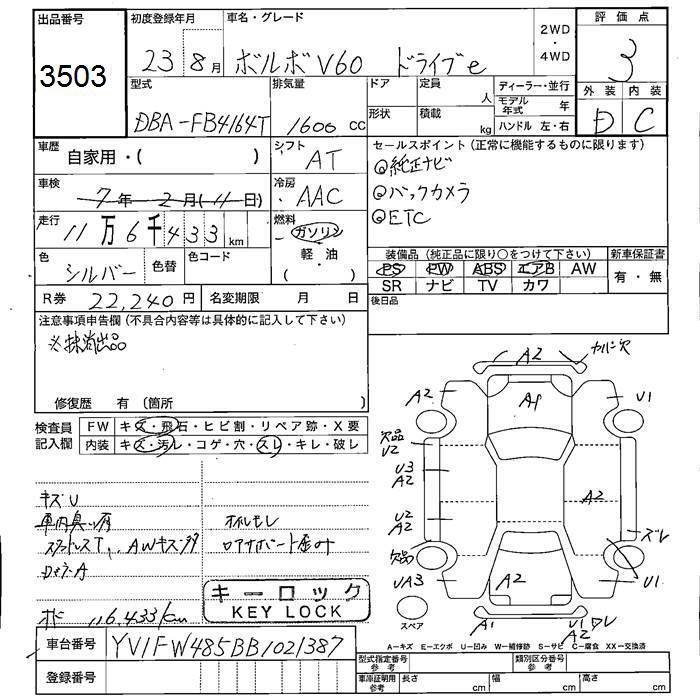 出品番号
3503
初度登録年月
23 8月
車名・グレード
ボルボV60 ドライブe
2WD
・
4WD
評価点
3
外装 内装
D C
型式
DBA-FB4164T
排気量
1600 cc
ドア
形状
定員
人
積載
kg
ディーラー・並行
モデル年式 年
ハンドル 左・右
車歴
自家用・( )
シフト
AT
車検
7年 2月(11日)
冷房
AAC
走行
11万6千433km
燃料
ガソリン
・
軽・油
( )
色
シルバー
色替
色コード
R券 22,240円
名変期限 月 日
セールスポイント(正常に機能するものに限ります)
◎純正ナビ
◎バックカメラ
◎ETC
装備品(純正品に限り○をつけて下さい)
PS PW ABS エアB AW
SR ナビ TV カワ
新車保証書
有・無
後日品
注意事項申告欄(不具合内容等は具体的に記入して下さい)
※抹消出品
修復歴 有(箇所 )
検査員記入欄
FW キズ・飛石・ヒビ割・リペア跡・X要
内装 キズ・汚レ・コゲ・穴・スレ・キレ・破レ
キズU
車内臭い有
スタッドレスT、AWキズ
オイルモレ
ボ 116,433km
キーロック
KEY LOCK
車台番号 YV1FW485BB1021387
登録番号
A2
カバー欠
A2
A1
U1
欠品
U2
U3
A2
U2
A2
A2
ズレ
欠品
UA3
A2
U1
スペア
A1
U1
ワレ
A2
A−キズ E−エクボ U−凹み W−補修跡 S−サビ C−腐食 XX−交換済
型式指定番号参考
類別区分番号参考
車庫証明用参考
長さ cm
幅 cm
高さ cm